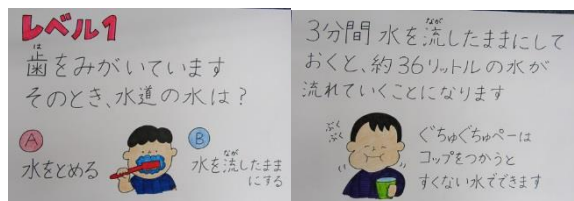 レベル1
は
歯をみがいています
そのとき、水道の水は？
A
水をとめる
B
なが
水を流したまま
にする
なが
3分間 水を流したままにして
おくと、約36リットルの水が
流れていくことになります
ぶく
ぶく
ぐちゅぐちゅぺーは
コップをつかうと
すくない水でできます